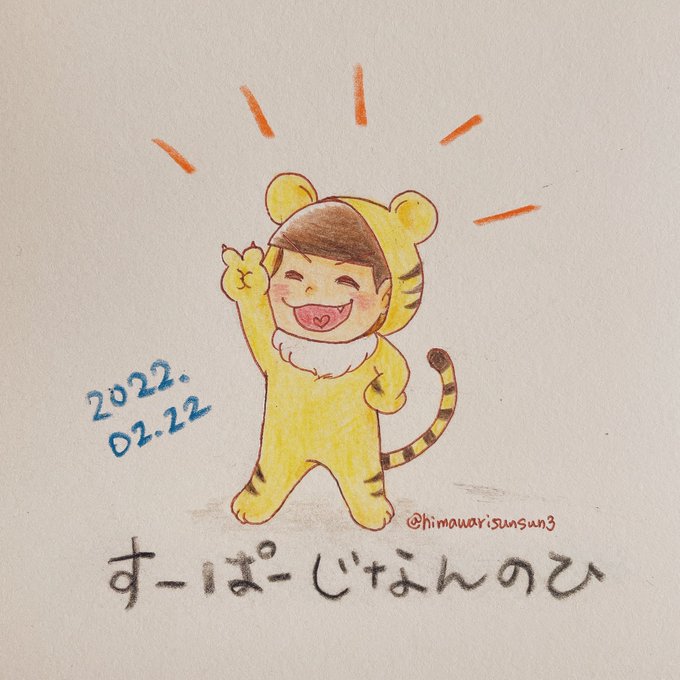 2022.
02.22
@himawarisunsun3
すーぱーじなんのひ